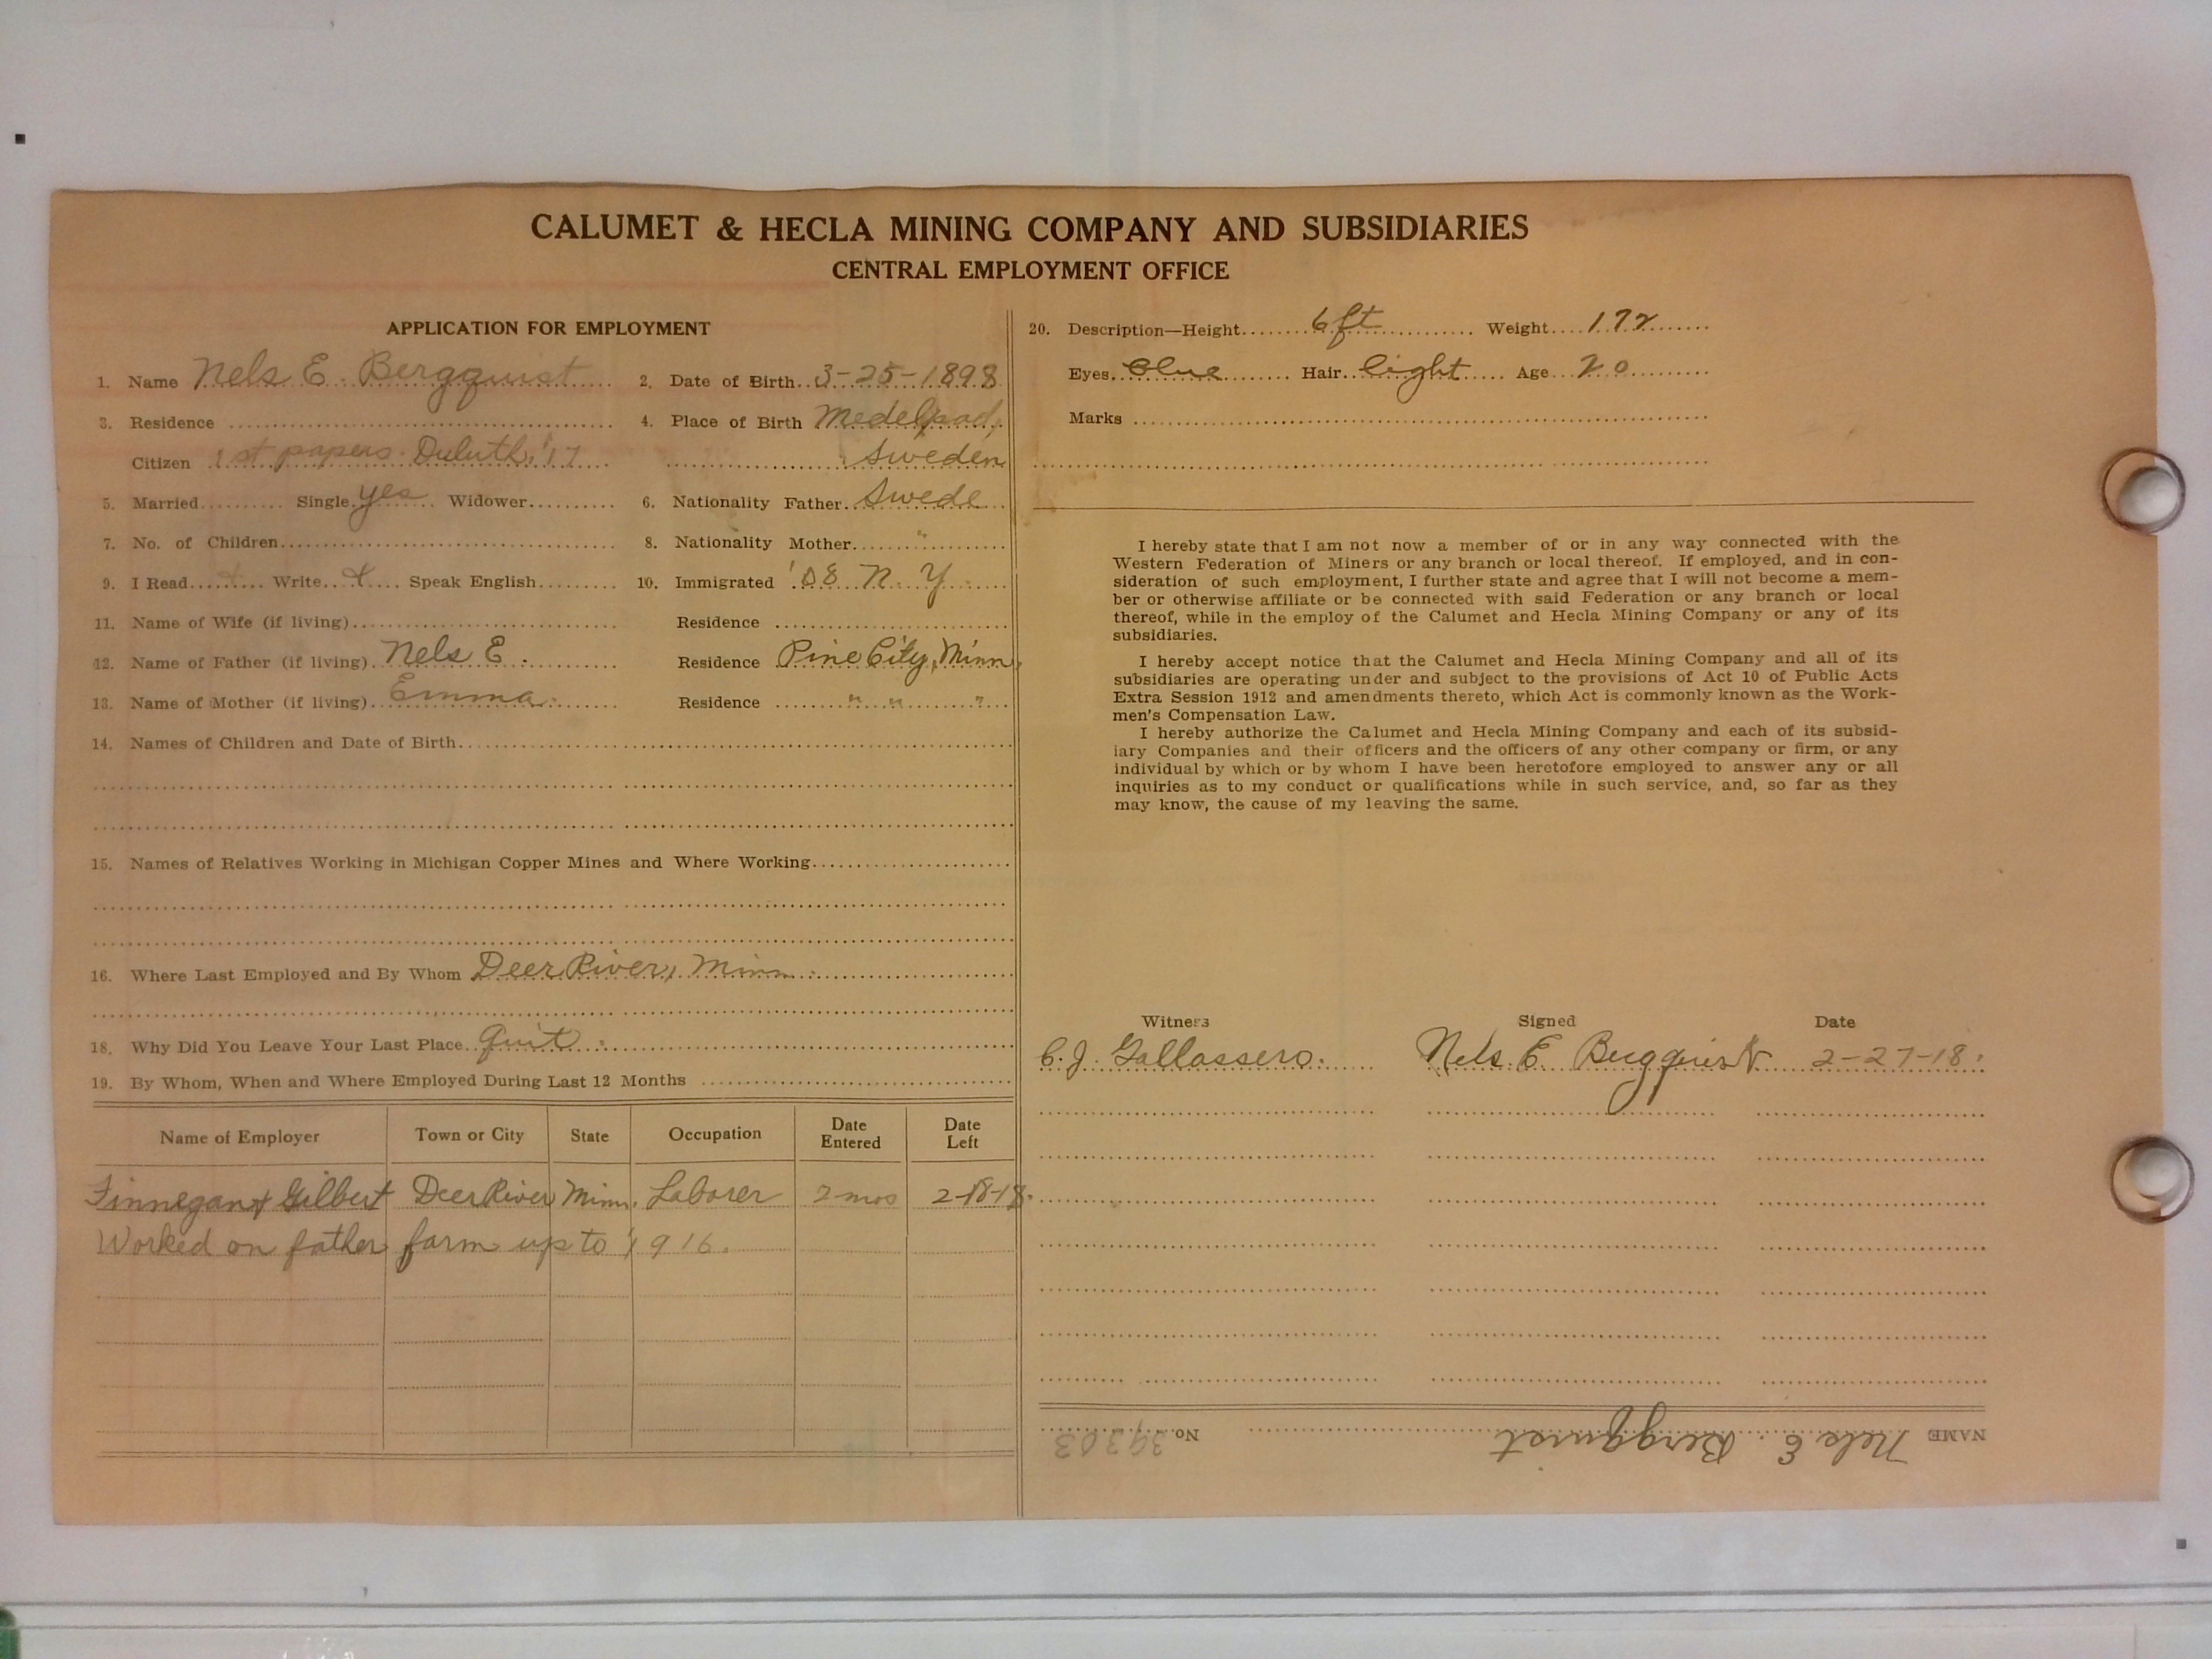 CALUMET & HECLA MINING COMPANY AND SUBSIDIARIES
CENTRAL EMPLOYMENT OFFICE
APPLICATION FOR EMPLOYMENT
1. Name Nels E. Bergquist 2. Date of Birth 3-25-1898
3. Residence 4. Place of Birth Medelpad,
Citizen 1st papers Duluth, '17 Sweden
5. Married Single yes Widower 6. Nationality Father Swede
7. No. of Children 8. Nationality Mother "
9. I Read + Write + Speak English 10. Immigrated '08 N. Y.
11. Name of Wife (if living) Residence
12. Name of Father (if living) Nels E. Residence Pine City, Minn.
13. Name of Mother (if living) Emma. Residence " " "
14. Names of Children and Date of Birth
15. Names of Relatives Working in Michigan Copper Mines and Where Working
16. Where Last Employed and By Whom Deer River, Minn.
18. Why Did You Leave Your Last Place Quit.
19. By Whom, When and Where Employed During Last 12 Months
Name of Employer Town or City State Occupation Date Entered Date Left
Finnegan & Gilbert Deer River Minn. Laborer 2 mos 2-18-18.
Worked on father farm up to 1916.
20. Description—Height 6 ft Weight 172
Eyes Blue Hair light Age 20
Marks
I hereby state that I am not now a member of or in any way connected with the
Western Federation of Miners or any branch or local thereof. If employed, and in con-
sideration of such employment, I further state and agree that I will not become a mem-
ber or otherwise affiliate or be connected with said Federation or any branch or local
thereof, while in the employ of the Calumet and Hecla Mining Company or any of its
subsidiaries.
I hereby accept notice that the Calumet and Hecla Mining Company and all of its
subsidiaries are operating under and subject to the provisions of Act 10 of Public Acts
Extra Session 1912 and amendments thereto, which Act is commonly known as the Work-
men's Compensation Law.
I hereby authorize the Calumet and Hecla Mining Company and each of its subsid-
iary Companies and their officers and the officers of any other company or firm, or any
individual by which or by whom I have been heretofore employed to answer any or all
inquiries as to my conduct or qualifications while in such service, and, so far as they
may know, the cause of my leaving the same.
Witness Signed Date
C. J. Gallassero. Nels. E. Bergquist 2-27-18.
NAME Nels E. Bergquist No. 39303